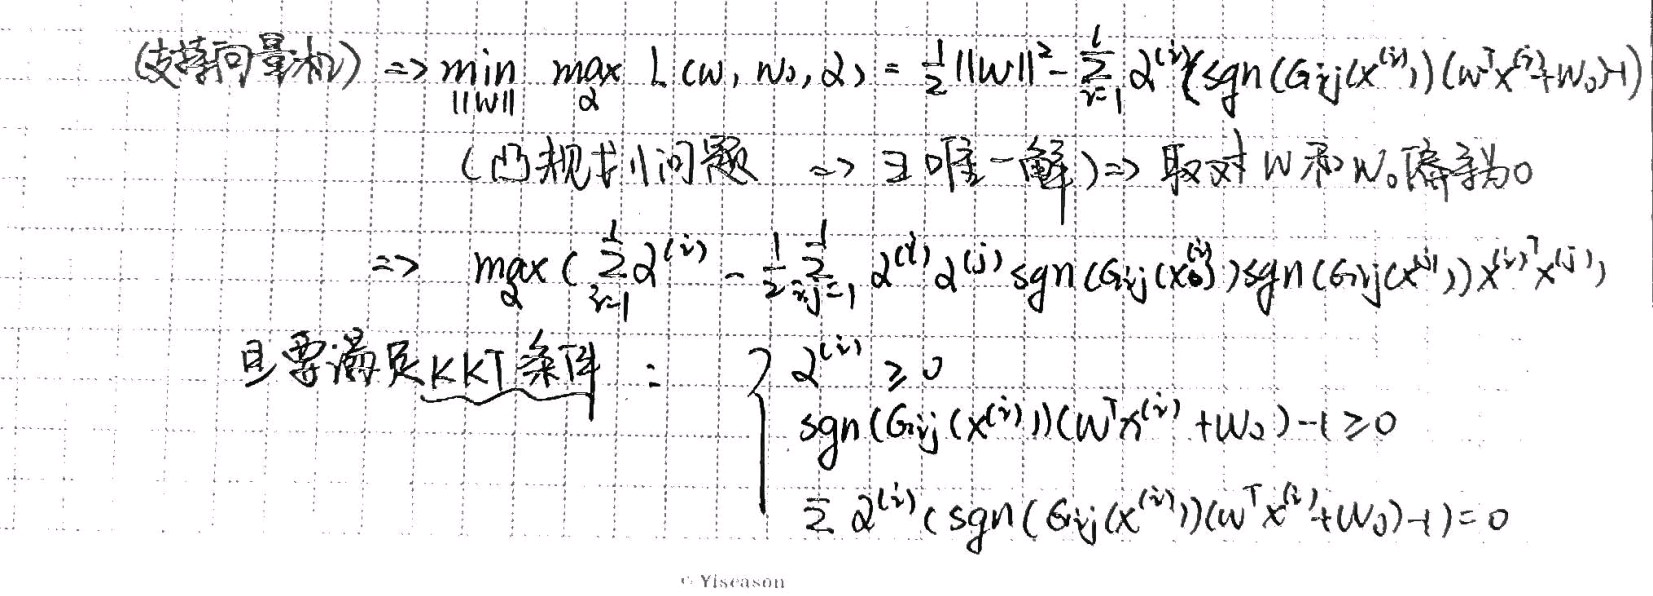 (支撑向量机) => min_{||W||} max_α L(w, w₀, α) = 1/2 ||W||² - Σ_{i=1}^{l} α^{(i)} (sgn(G_{ij}(x^{(i)}))(w^T x^{(i)} + w₀) - 1)
(凸规划问题 => ∃唯一解) => 取对 W 和 W₀ 偏导为0
=> max_α ( Σ_{i=1}^{l} α^{(i)} - 1/2 Σ_{i,j=1}^{l} α^{(i)} α^{(j)} sgn(G_{ij}(x^{(i)})) sgn(G_{ij}(x^{(j)})) x^{(i)T} x^{(j)} )
且要满足KKT条件 : { α^{(i)} ≥ 0
sgn(G_{ij}(x^{(i)}))(w^T x^{(i)} + w₀) - 1 ≥ 0
Σ α^{(i)} (sgn(G_{ij}(x^{(i)}))(w^T x^{(i)} + w₀) - 1) = 0
© Yiseason